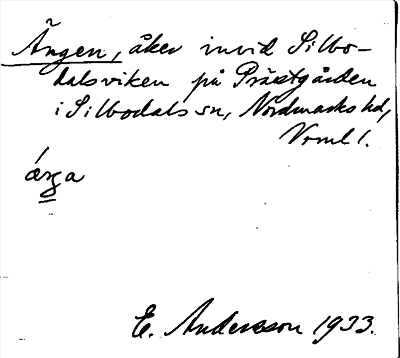 Ängen, åker invid Silbo-
dalsviken på Prästgården
i Silbodals sn, Nordmarks hd,
Vrml.
ǽrga
E. Andersson 1933.